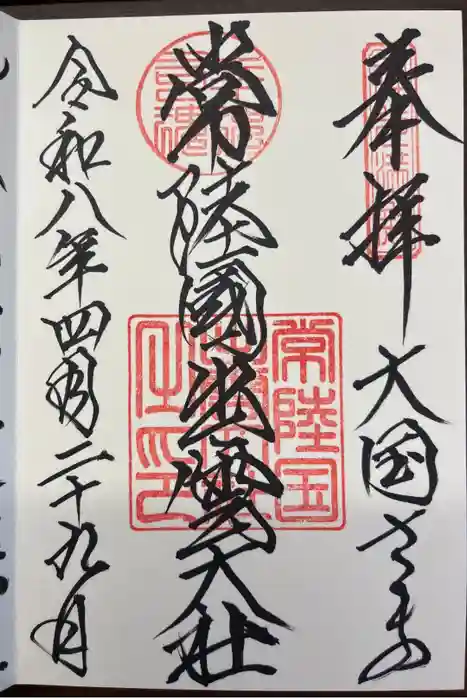 奉拝 大国さま
常陸國出雲大社
常陸国
令和八年四月二十九日